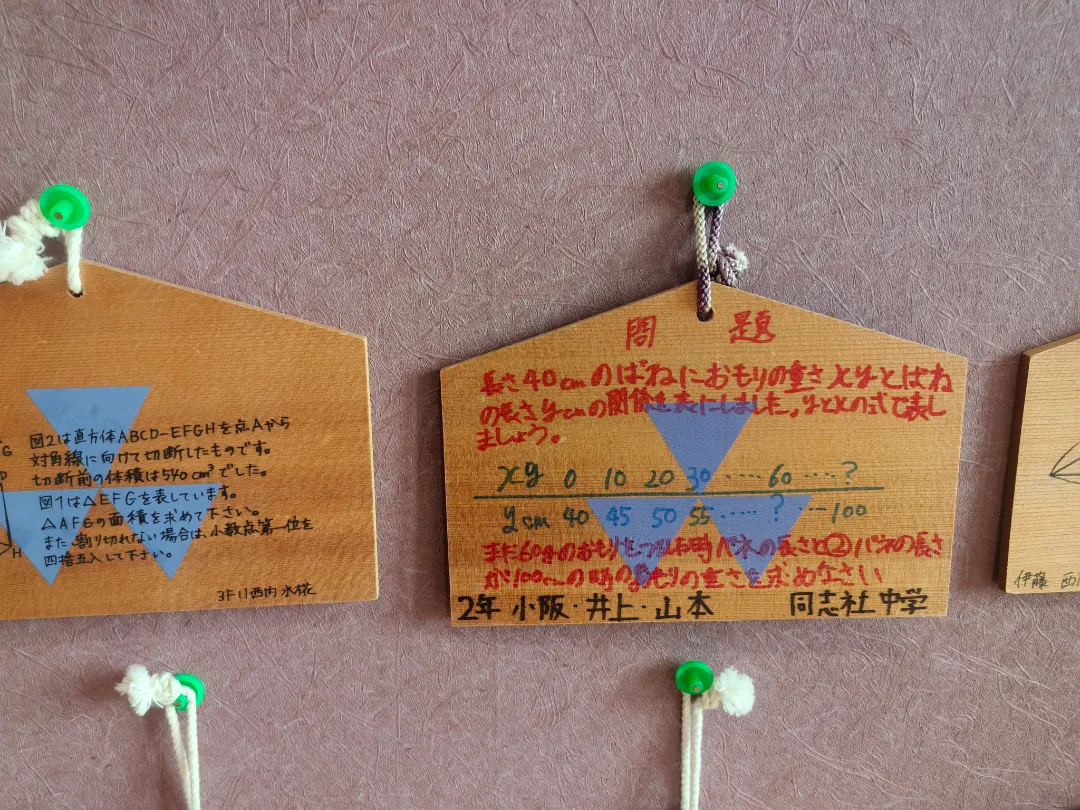 G
D
H
図2は直方体ABCD-EFGHを点Aから
対角線に向けて切断したものです。
切断前の体積は540cm³でした。
図1は△EFGを表しています。
△AFGの面積を求めて下さい。
また、割り切れない場合は、小数点第一位を
四捨五入して下さい。
西内
問題
長さ40cmのばねにおもりの重さxgとばね
の長さycmの関係を表にしました。yをxの式で表し
ましょう。
xg 0 10 20 30 ····· 60 ····?
ycm 40 45 50 55 ····· ? ····100
また60gのおもりをつけた時バネの長さと②バネの長さ
が100cmの時のおもりの重さを求めなさい
2年 小阪・井上・山本 同志社中学
伊藤